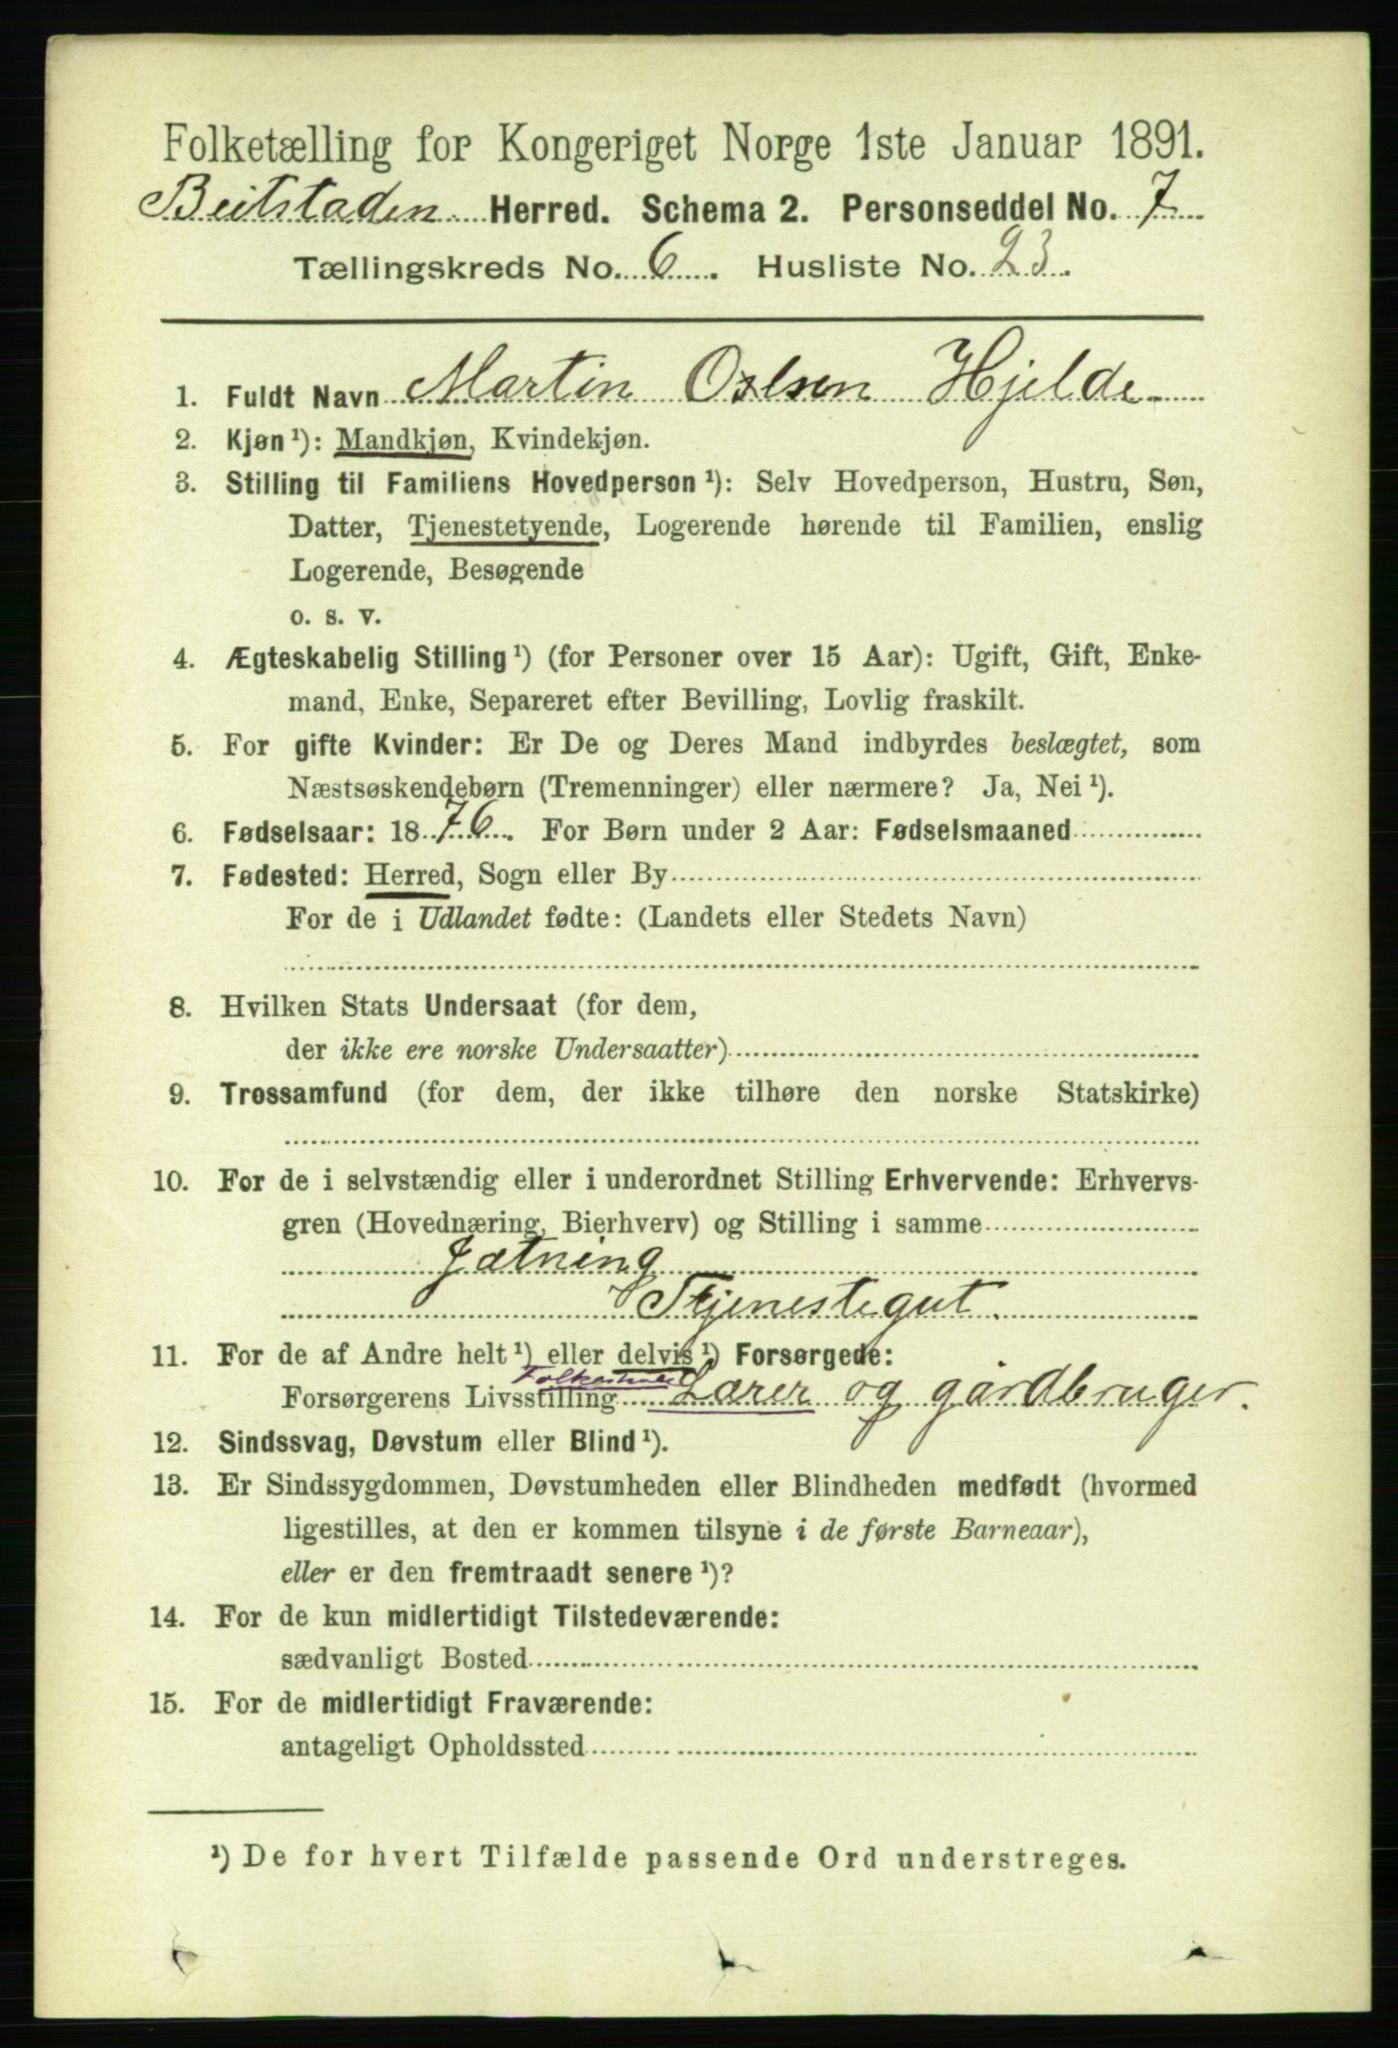 Folketælling for Kongeriget Norge 1ste Januar 1891.
Beitstaden Herred. Schema 2. Personseddel No. 7
Tællingskreds No. 6. Husliste No. 23.
1. Fuldt Navn Martin Olsen Hjelde
2. Kjøn ¹): Mandkjøn, Kvindekjøn.
3. Stilling til Familiens Hovedperson ¹): Selv Hovedperson, Hustru, Søn,
Datter, Tjenestetyende, Logerende hørende til Familien, enslig
Logerende, Besøgende
o. s. v.
4. Ægteskabelig Stilling ¹) (for Personer over 15 Aar): Ugift, Gift, Enke-
mand, Enke, Separeret efter Bevilling, Lovlig fraskilt.
5. For gifte Kvinder: Er De og Deres Mand indbyrdes beslægtet, som
Næstsøskendebørn (Tremenninger) eller nærmere? Ja, Nei ¹).
6. Fødselsaar: 1876. For Børn under 2 Aar: Fødselsmaaned
7. Fødested: Herred, Sogn eller By
For de i Udlandet fødte: (Landets eller Stedets Navn)
8. Hvilken Stats Undersaat (for dem,
der ikke ere norske Undersaatter)
9. Trossamfund (for dem, der ikke tilhøre den norske Statskirke)
10. For de i selvstændig eller i underordnet Stilling Erhvervende: Erhvervs-
gren (Hovednæring, Bierhverv) og Stilling i samme
Jætning
Tjenestegut.
11. For de af Andre helt ¹) eller delvis ¹) Forsørgede:
Forsørgerens Livsstilling Lærer og gårdbruger.
12. Sindssvag, Døvstum eller Blind ¹).
13. Er Sindssygdommen, Døvstumheden eller Blindheden medfødt (hvormed
ligestilles, at den er kommen tilsyne i de første Barneaar),
eller er den fremtraadt senere ¹)?
14. For de kun midlertidigt Tilstedeværende:
sædvanligt Bosted
15. For de midlertidigt Fraværende:
antageligt Opholdssted
¹) De for hvert Tilfælde passende Ord understreges.